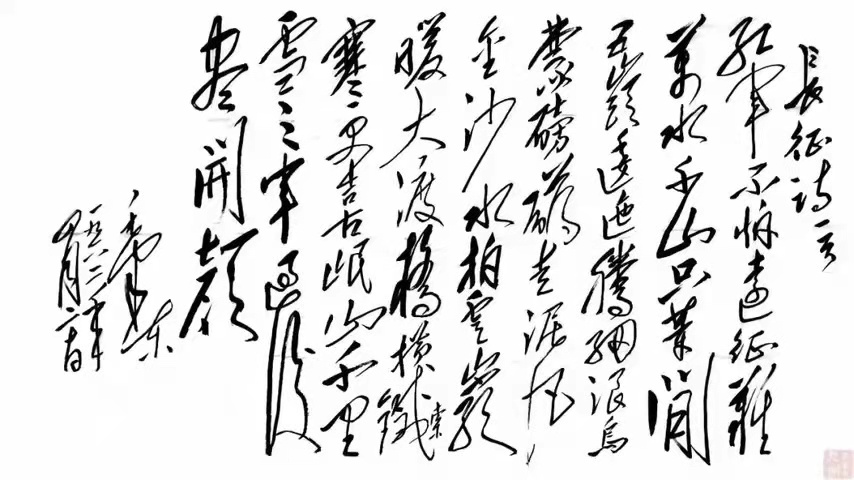 長征詩一首
紅軍不怕遠征難
萬水千山只等閒
五嶺逶迤騰細浪烏
蒙磅礴走泥丸
金沙水拍雲巖
暖大渡橋橫鐵索
寒更喜岷山千里
雪三軍過後
盡開顏
毛澤東